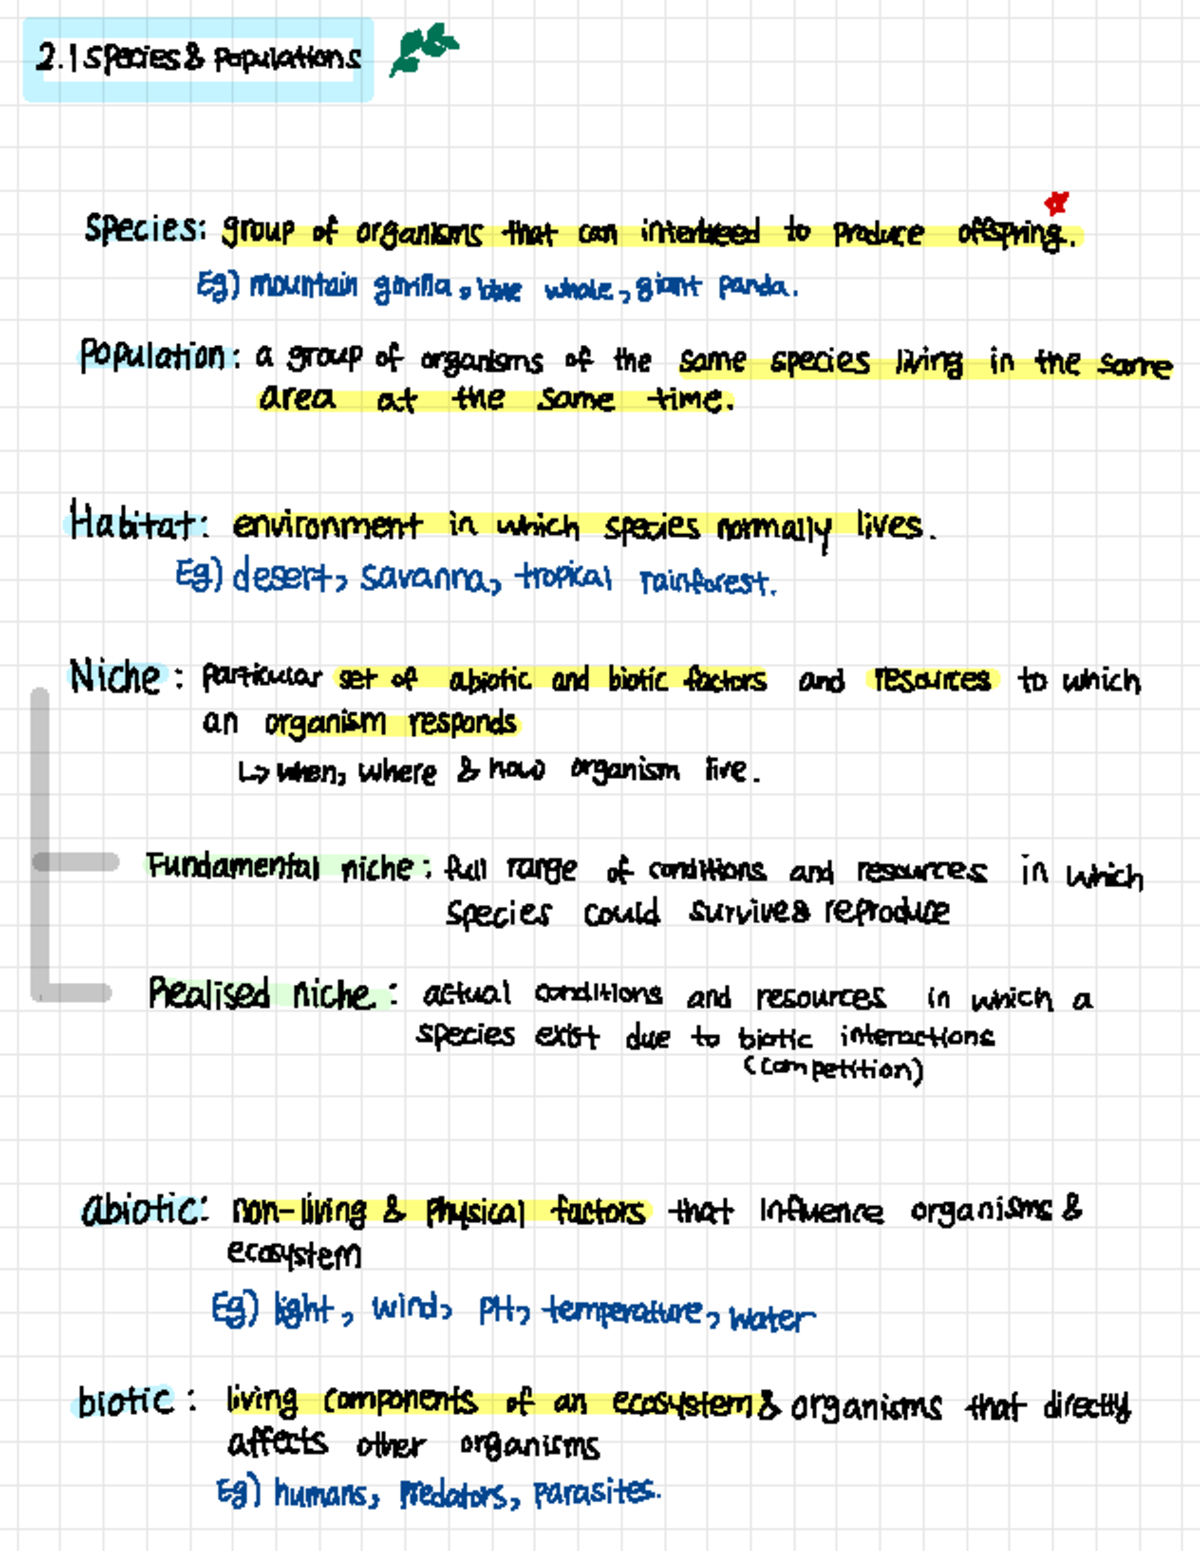 2.1 Species & Populations
Species: group of organisms that can interbreed to produce offspring.
Eg) mountain gorilla, blue whale, giant panda.
Population: a group of organisms of the same species living in the same
area at the same time.
Habitat: environment in which species normally lives.
Eg) desert, savanna, tropical rainforest.
Niche: particular set of abiotic and biotic factors and resources to which
an organism responds
↳ when, where & how organism live.
Fundamental niche: full range of conditions and resources in which
species could survive & reproduce
Realised niche: actual conditions and resources in which a
species exist due to biotic interactions
(competition)
abiotic: non-living & physical factors that influence organisms &
ecosystem
Eg) light, wind, pH, temperature, water
biotic: living components of an ecosystem & organisms that directly
affects other organisms
Eg) humans, predators, parasites.